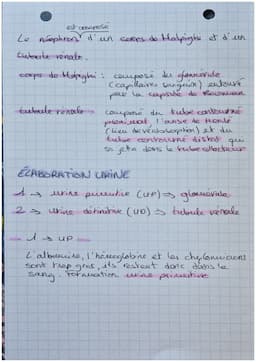 est composé
Le néphron d'un corps de Malpighi et d'un
tubule rénale.
corps de Malpighi : composé du glomérule
(capillaire sanguin) entouré
par la capsule de Bowman
tubule rénale composé du tube contourné
proximal, l'anse de Henlé
(lieu de réabsorption) et du
tube contourné distal qui
se jette dans le tube collecteur
ÉLABORATION URINE
1 → urine primitive (UP) ⇒ glomérule
2 → urine définitive (UD) ⇒ tubule rénale
1 → UP
L'albumine, l'hémoglobine et les chylomicrons
sont trop gros, ils restent donc dans le
sang. Formation urine primitive